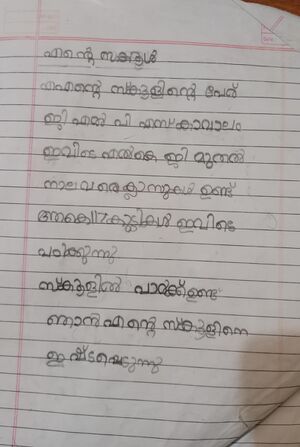 എന്റെ സ്കൂൾ
എന്റെ സ്കൂളിന്റെ പേര്
ജി എൽ പി എസ് കാവാലം
ഇവിടെ എൽകെ ജി മുതൽ
നാല് വരെ ക്ലാസുകൾ ഉണ്ട്
ആകെ 117 കുട്ടികൾ ഇവിടെ
പഠിക്കുന്നു
സ്കൂളിൽ പാർക്ക് ഉണ്ട്
ഞാൻ എന്റെ സ്കൂളിനെ
ഇഷ്ടപ്പെടുന്നു